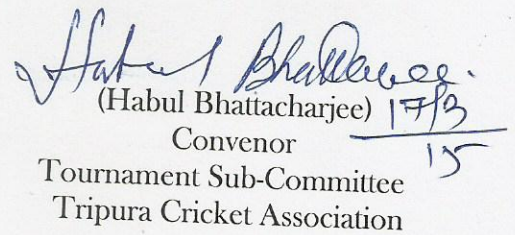 Habul Bhattacharjee.
(Habul Bhattacharjee) 17/3
15
Convenor
Tournament Sub-Committee
Tripura Cricket Association